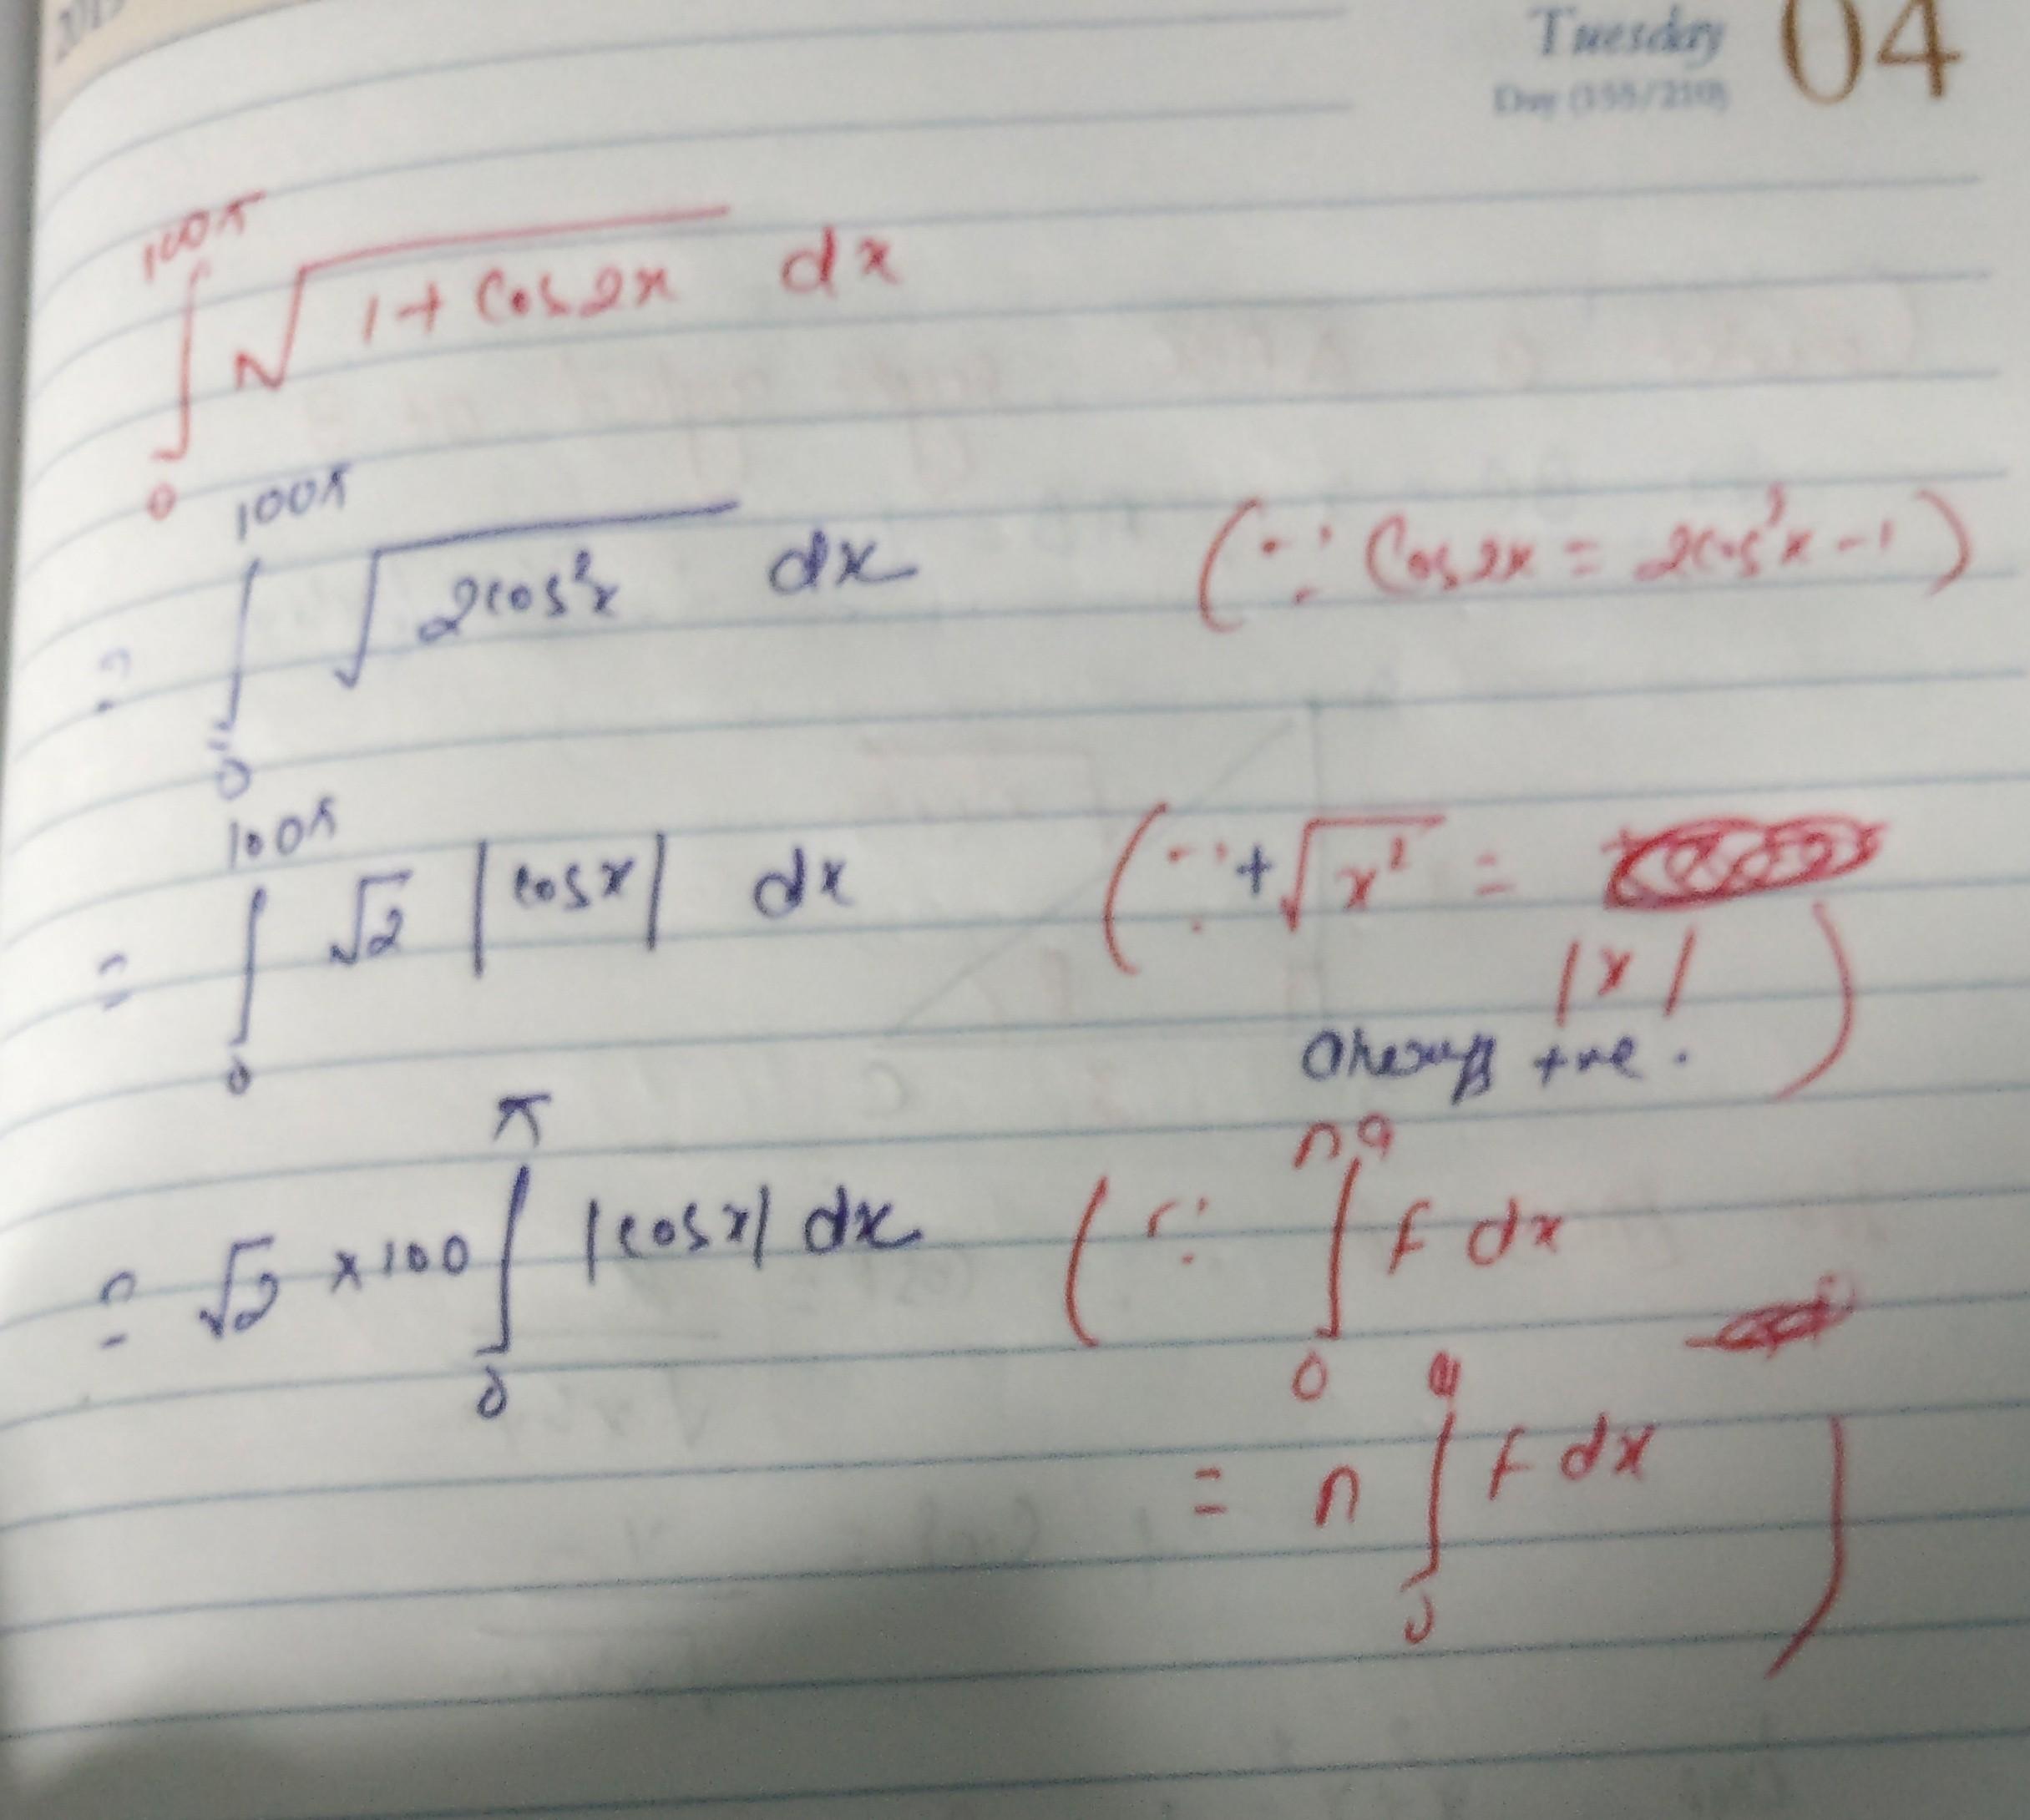 Tuesday 04
Day (155/210)
∫₀^{100π} √(1 + Cos2x) dx
= ∫₀^{100π} √(2cos²x) dx (∵ Cos2x = 2cos²x - 1)
= ∫₀^{100π} √2 |cosx| dx (∵ +√x² =
|x| )
always +ve.
= √2 × 100 ∫₀^{π} |cosx| dx (∵ ∫₀^{na} f dx
= n ∫₀^{a} f dx )